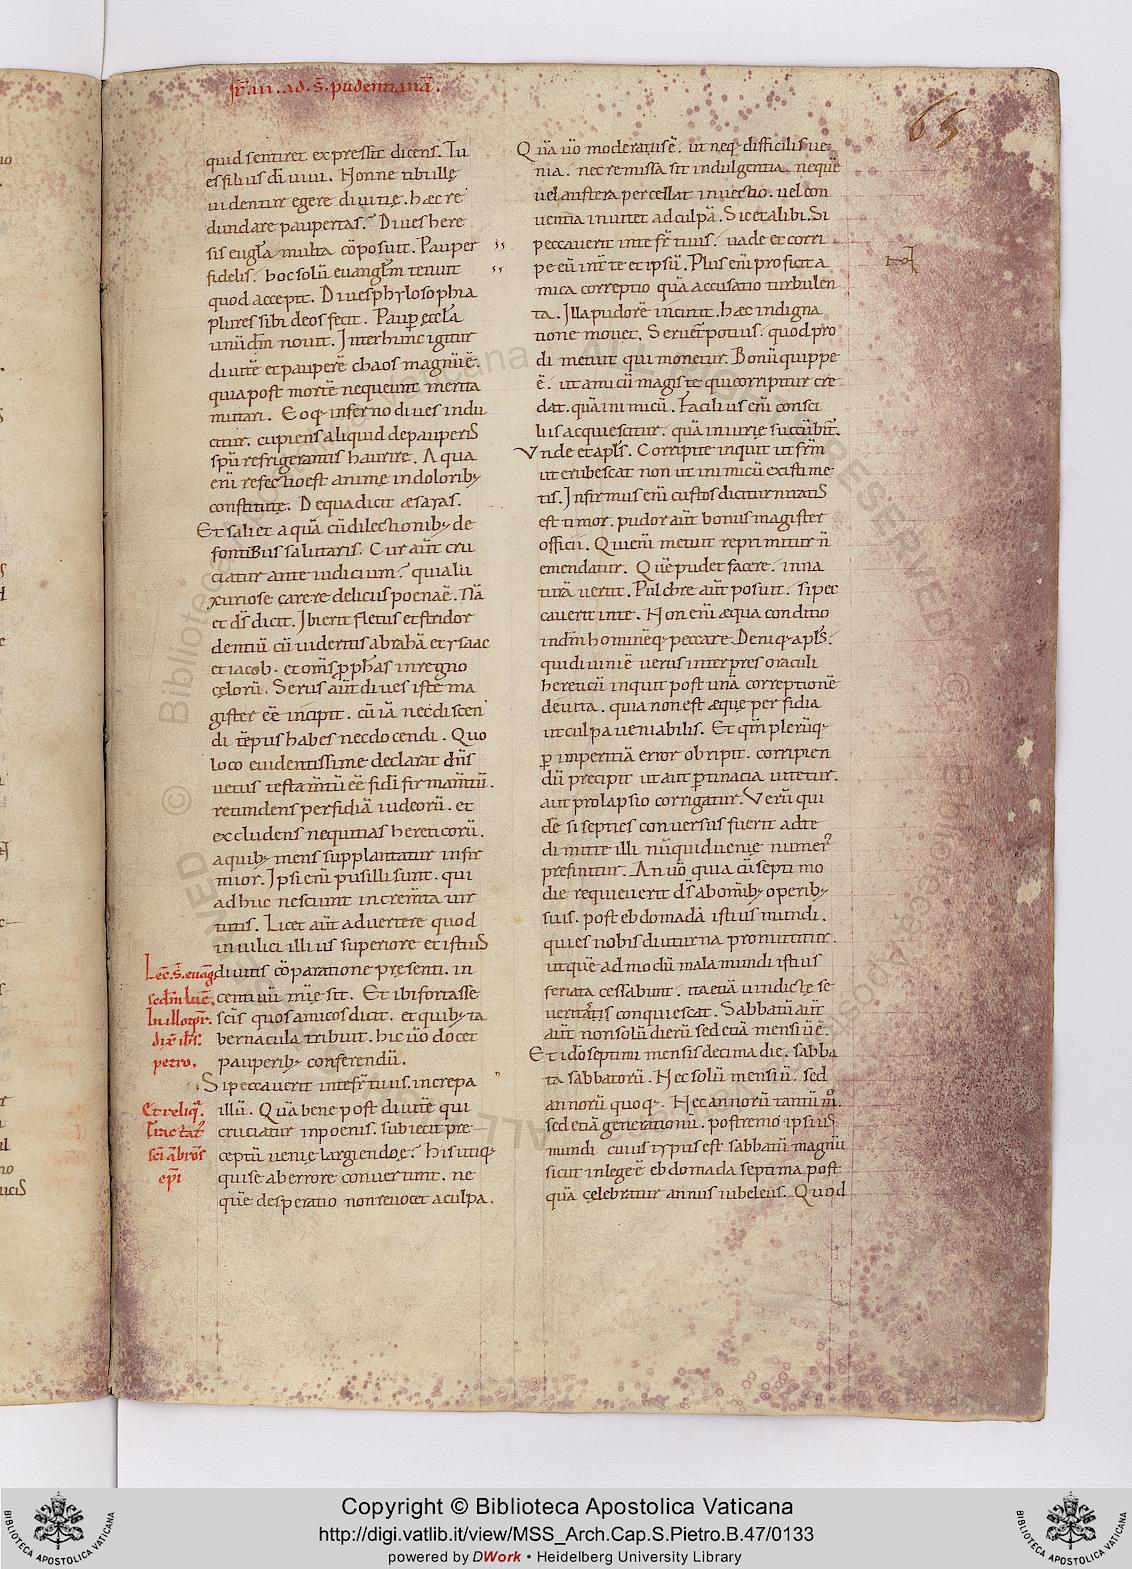 fr̄. iii. ad. s̄. pudentianā.
65
quid sentiret expressit dicens. Tu
es filius dī uiui. Nonne tibi illę
uidentur egere diuitię. hæc re
dundare paupertas? Diues here
sis eugl̄a multa cōposuit. Pauper
fidelis. hoc solū euangl̄m tenuit
quod accepit. Diues phylosophia
plures sibi deos fecit. Paup̄ ęccl̄a
unū dm̄ nouit. Inter hunc igitur
diuitē et pauperē chaos magnū ē.
quia post mortē nequeunt merita
mutari. Eoq; inferno diues indu
citur. cupiens aliquid de pauperis
sp̄u refrigerantis haurire. Aqua
enī refectio est animę in dolorib;
constitutę. De qua dicit æsaias.
Et saliet aquā cū dilectionib; de
fontibus salutaris. Cur aūt cru
ciatur ante iudicium? quia lu
xuriose carere deliciis poena ē. Nā
et dn̄s dicit. Ibi erit fletus et stridor
dentiū cū uideritis abrahā et ysaac
et iacob. et om̄s pphās in regno
cęlorū. Serus aūt diues iste ma
gister eē incipit. cū iā nec discen
di tēpus habes nec docendi. Quo
loco euidentissime declarat dn̄s
uetus testam̄tū eē fidī firmam̄tū.
retundens perfidiā iudeorū. et
excludens nequitias hereticorū.
a quib; mens supplantatur infir
mior. Ipsi enī pusilli sunt. qui
adhuc nesciunt increm̄ta uir
tutis. Licet aūt aduertere quod
in uilici illius superiore et istius
diuitis cōparatione presenti. in
centiuū mīę sit. Et ibi fortasse
scīs quos amicos dicit. et quib; ta
bernacula tribuit. hic ūo docet
pauperib; conferendū.
Lec̄. s̄. euāg.
scdm̄ luc̄.
In illo tpr̄.
dix̄ ih̄s.
petro.
Si peccauerit in te fr̄ tuus. increpa
illū. Quā bene post diuitē qui
cruciatur in poenis. subiecit pre
ceptū uenię largiendę? his utiq;
qui se ab errore conuertunt. ne
quē desperatio non reuocet a culpa.
Et reliq̄.
Tractat̄.
scī ābrōs
epī
Quā ūo moderatus ē. ut neq; difficilis ue
nia. nec remissa sit indulgentia. nequē
uel austera percellat inuectio. uel con
uentia inuitet ad culpā. Sic et alibi. Si
peccauerit in te fr̄ tuus. uade et corri
pe eū int̄ te et ipsū. Plus enī proficit a
mica correptio quā accusatio turbulen
ta. Illa pudorē incutit. hæc indigna
tione mouet. Seruet̄ potius. quod pro
di metuit qui monetur. Bonū quippe
ē. ut amicū magis te qui corripitur cre
dat. quā inimicū. Facilius enī consi
liis acquiescitur. quā iniurię succūbit̄.
Vnde et apl̄s. Corripite inquit ut fr̄m
ut erubescat non ut inimicū existime
tis. Infirmus enī custos diuturnitatis
est timor. pudor aūt bonus magister
officii. Qui enī metuit reprimitur n̄
emendatur. Quē pudet facere. in na
turā uertit. Pulchre aūt posuit. si pec
cauerit in te. Non enī æqua conditio
in dm̄ hominēq; peccare. Deniq; apl̄s.
qui diuini ē uerus interpres oraculi
hereticū inquit post unā correptionē
deuita. quia non est æque perfidia
ut culpa ueniabilis. Et qm̄ plerūq;
p̄ imperitiā error obripit. corripien
dū precipit ut aut p̄tinacia uitetur.
aut prolapsio corrigatur. Verū qui
dē si septies conuersus fuerit ad te
dimitte illi nūquid uenię numer
prefinitur. An ūo quia cū septimo
die requieuerit ds̄ ab om̄ib; operib;
suis. post ebdomadā istius mundi.
quies nobis diuturna promittitur.
ut quē admodū mala mundi istius
feriata cessabunt. ita etiā uindictę se
ueritatis conquiescat. Sabbatū aūt
aūt non solū dierū sed etiā mensiū ē.
Et ido septimi mensis decima die. sabba
ta sabbatorū. Nec solū mensiū. sed
annorū quoq;. Nec annorū tantū m̊.
sed etiā generationū. postremo ipsius
mundi cuius typus est sabbatū magnū
sicut in lege ē ebdomada septima post
quā cęlebratur annus iubeleus. Quod
Copyright © Biblioteca Apostolica Vaticana
http://digi.vatlib.it/view/MSS_Arch.Cap.S.Pietro.B.47/0133
powered by DWork • Heidelberg University Library
BIBLIOTECA APOSTOLICA VATICANA
BIBLIOTECA APOSTOLICA VATICANA